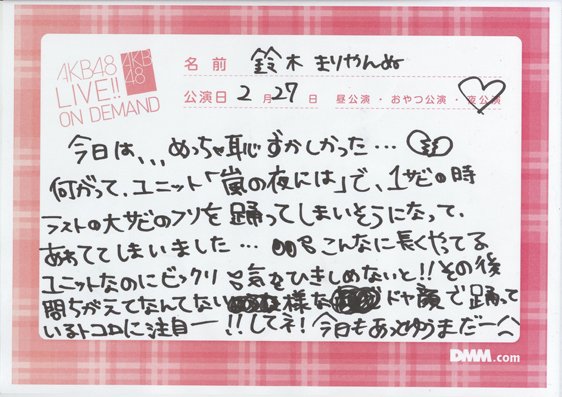 AKB48
LIVE!!
ON DEMAND
AKB
48
名前 鈴木まりやんぬ
公演日 2月27日 昼公演・おやつ公演・夜公演
今日は、、、めっちゃ恥ずかしかった…
何がって、ユニット「嵐の夜には」で、1サビの時
ラストの大サビのフリを踊ってしまいそうになって、
あわててしまいました… こんなに長くやってる
ユニットなのにビックリ 気をひきしめないと!! その後
間ちがえてなんてない様な ドヤ顔で踊って
いるトコロに注目ー!!してネ! 今日もあ
DMM.com